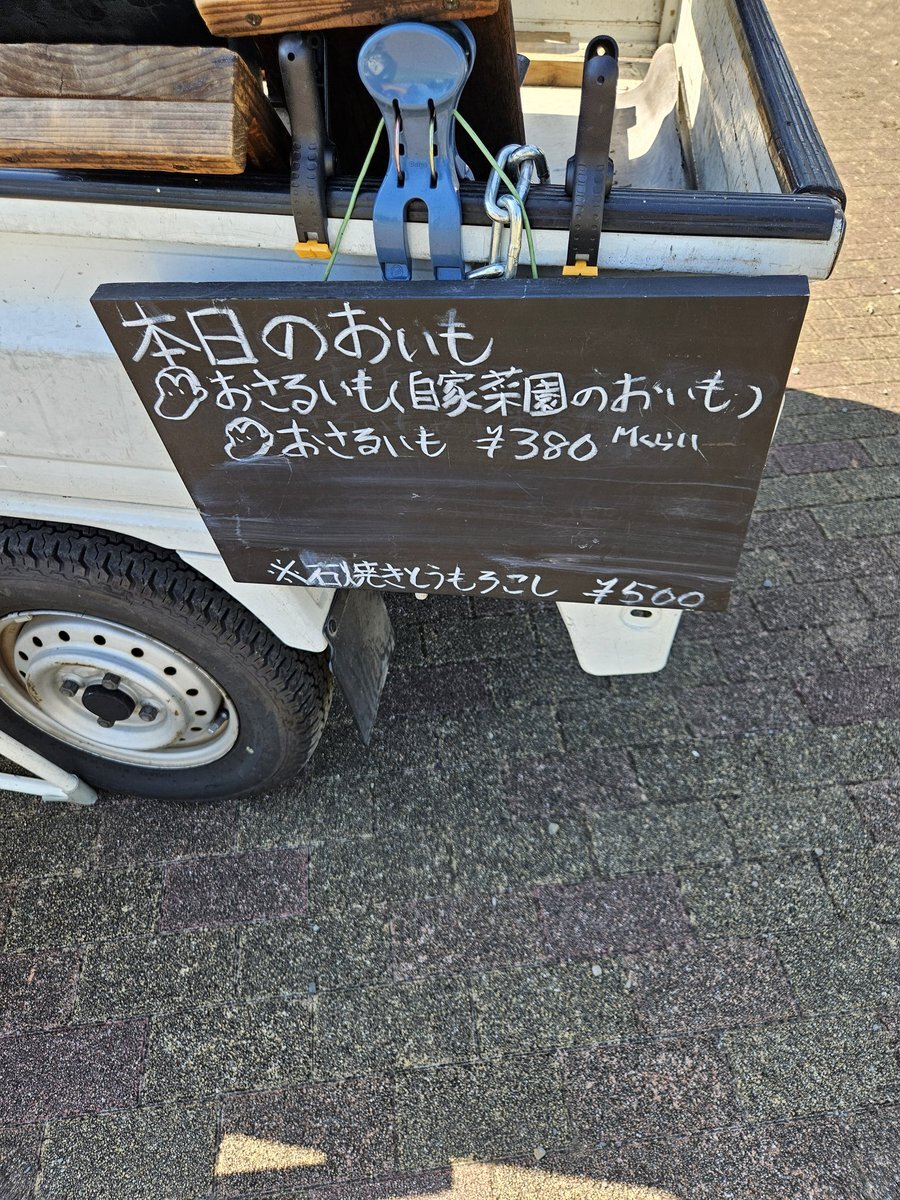 本日のおいも
おさるいも(自家菜園のおいも)
おさるいも ¥380 Mくらい
※石焼きとうもろこし ¥500